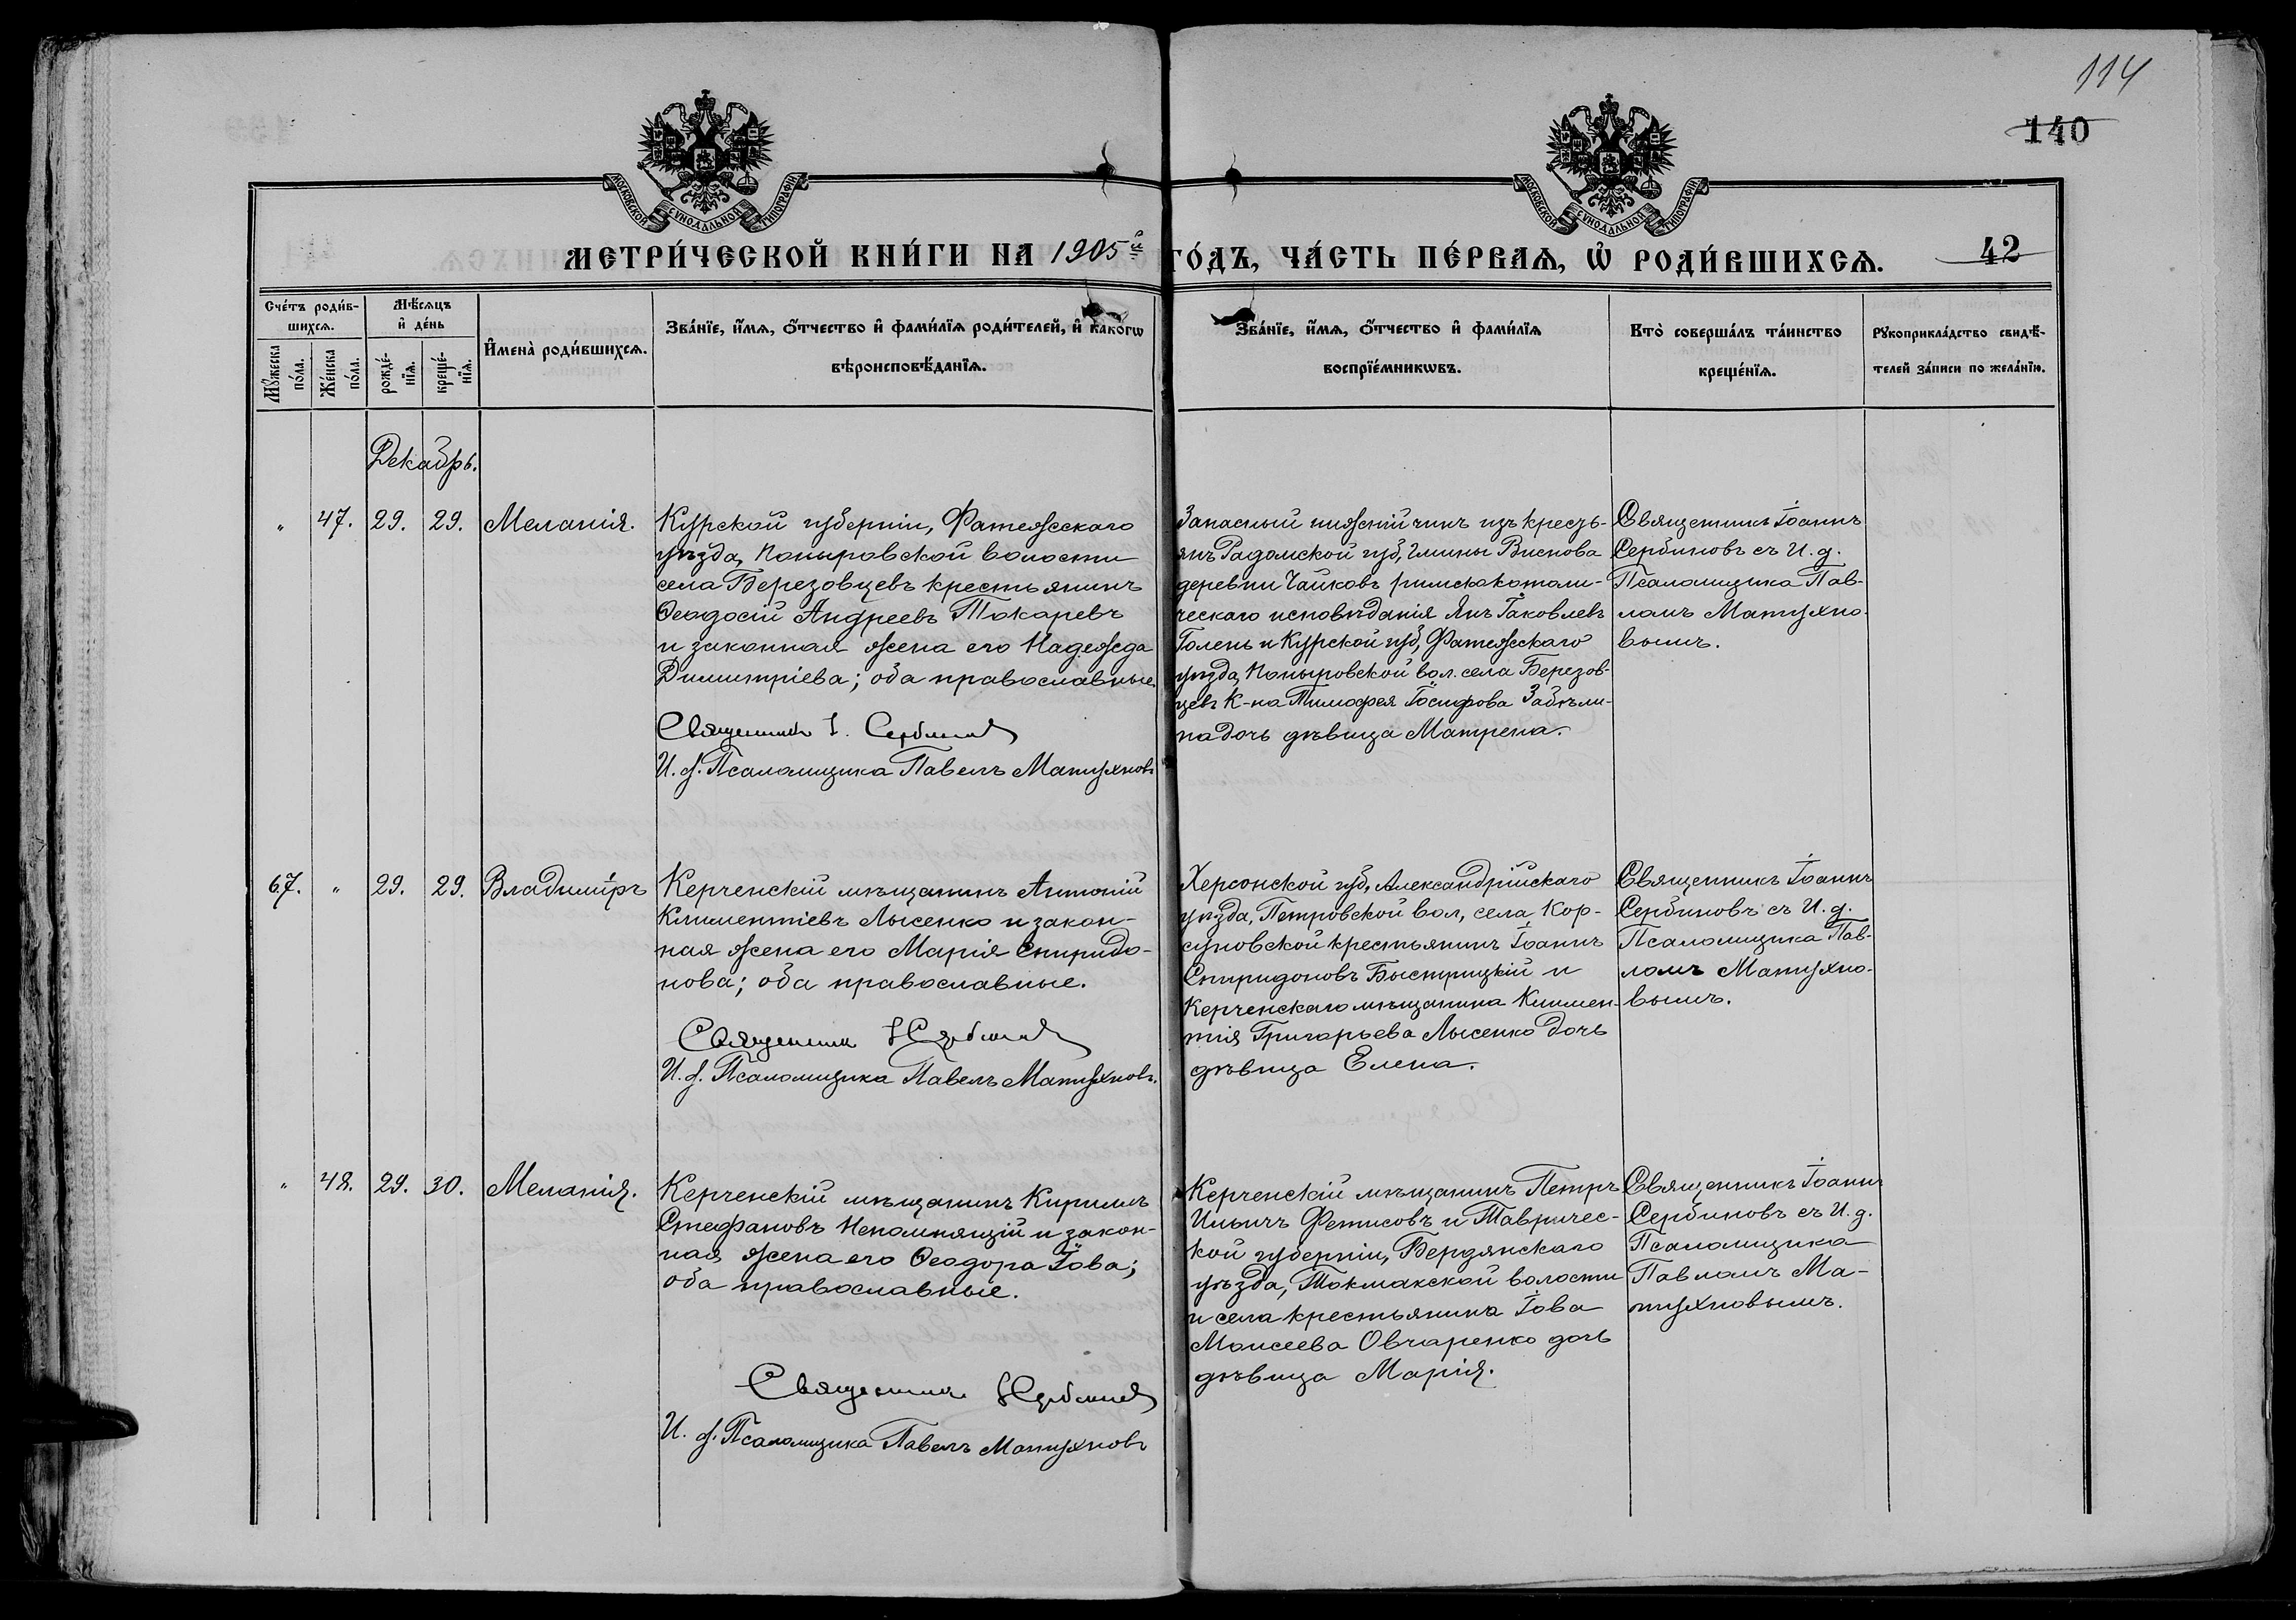 114
140
МОСКОВСКОЙ СѴНОДАЛЬНОЙ ТИПОГРАФІИ
МОСКОВСКОЙ СѴНОДАЛЬНОЙ ТИПОГРАФІИ
МЕТРИ́ЧЕСКОЙ КНИ́ГИ НА 1905й ГО́ДЪ, ЧА́СТЬ ПЕ́РВАѦ, Ѡ҆ РОДИ́ВШИХСѦ.
42
Сче́тъ роди́в-
шихсѧ.
Мѣ́сѧцъ
и҆ де́нь
Мꙋ́жеска
по́ла.
Же́нска
по́ла.
рожде́-
нїѧ.
креще́-
нїѧ.
И҆мена̀ роди́вшихсѧ.
Зва́нїе, и҆́мѧ, ѻ҆́тчество и҆ фами́лїѧ роди́телей, и҆ како́гѡ
вѣроисповѣ́данїѧ.
Зва́нїе, и҆́мѧ, ѻ҆́тчество и҆ фами́лїѧ
воспрїе́мникѡвъ.
Кто̀ соверша́лъ та́инство
креще́нїѧ.
Рꙋкоприкла́дство свидѣ́-
телей за́писи по жела́нїю.
Декабрь.
" 47. 29. 29. Меланія.
Курской губерніи, Фатежскаго
уѣзда, Поныровской волости
села Березовцевъ крестьянинъ
Ѳеодосій Андреевъ Токаревъ
и законная жена его Надежда
Димитріева; оба православные.
Священникъ І. Сербиновъ
И. д. Псаломщика Павелъ Матухновъ
Запасный нижній чинъ изъ кресть-
янъ Радомской губ, гмины Виснова
деревни Чайковъ римскокатоли-
ческаго исповѣданія Янъ Яковлевъ
Голень и Курской губ, Фатежскаго
уѣзда, Поныровской вол. села Березов-
цевъ К-на Тимофея Іосифова Забѣли-
на дочь дѣвица Матрена.
Священникъ Іоаннъ
Сербиновъ съ И. д.
Псаломщика Пав-
ломъ Матухно-
вымъ.
67. " 29. 29. Владиміръ
Керченскій мѣщанинъ Антоній
Климентіевъ Лысенко и закон-
ная жена его Марія Спиридо-
нова; оба православные.
Священникъ І Сербиновъ
И. д. Псаломщика Павелъ Матухновъ.
Херсонской губ, Александрійскаго
уѣзда, Петровской вол, села Кор-
суновской крестьянинъ Іоаннъ
Спиридоновъ Быстрицкій и
Керченскаго мѣщанина Климен-
тія Григорьева Лысенко дочь
дѣвица Елена.
Священникъ Іоаннъ
Сербиновъ съ И. д.
Псаломщика Пав-
ломъ Матухно-
вымъ.
" 48. 29. 30. Меланія.
Керченскій мѣщанинъ Кириллъ
Стефановъ Непомнящій и закон-
ная жена его Ѳеодора Іова;
оба православные.
Священникъ І Сербиновъ
И. д. Псаломщика Павелъ Матухновъ
Керченскій мѣщанинъ Петръ
Ильичъ Фетисовъ и Тавричес-
кой губерніи, Бердянскаго
уѣзда, Токмакской волости
и села крестьянина Іова
Моисеева Овчаренко дочь
дѣвица Марія.
Священникъ Іоаннъ
Сербиновъ съ И. д.
Псаломщика
Павломъ Ма-
тухновымъ.